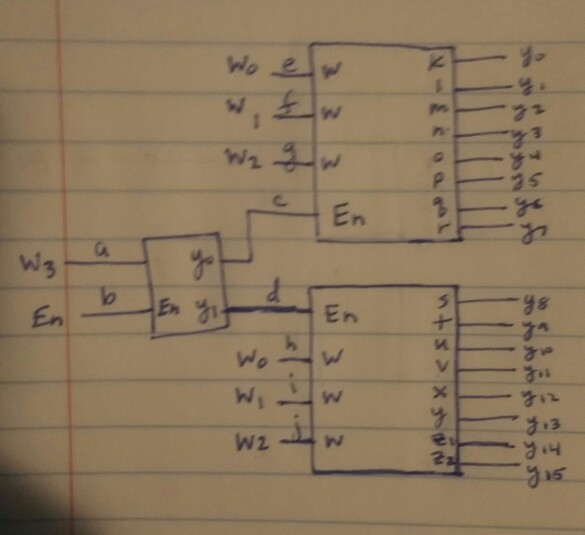 W0 e W K y0
W1 f W l y1
W2 g W m y2
n y3
o y4
p y5
c En q y6
r y7
W3 a y0
En b En y1 d En s y8
t y9
W0 h W u y10
v y11
W1 i W x y12
y y13
W2 j W z1 y14
z2 y15